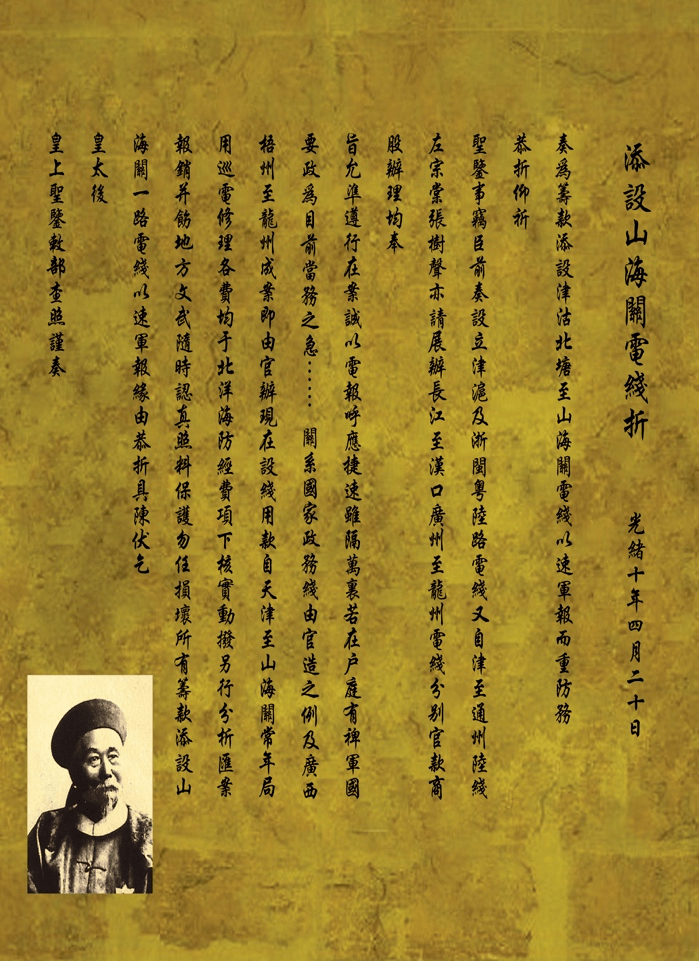 添設山海關電綫折 光緒十年四月二十日
奏爲籌款添設津沽北塘至山海關電綫以速軍報而重防務
恭折仰祈
聖鑒事竊臣前奏設立津滬及浙閩粵陸路電綫又自津至通州陸綫
左宗棠張樹聲亦請展辦長江至漢口廣州至龍州電綫分別官款商
股辦理均奉
旨允準遵行在案誠以電報呼應捷速雖隔萬裏若在户庭有裨軍國
要政爲目前當務之急······關系國家政務綫由官造之例及廣西
梧州至龍州成案即由官辦現在設綫用款自天津至山海關常年局
用巡電修理各費均于北洋海防經費項下核實動撥另行分折匯案
報銷并飭地方文武隨時認真照料保護勿任損壞所有籌款添設山
海關一路電綫以速軍報緣由恭折具陳伏乞
皇太後
皇上聖鑒敕部查照謹奏